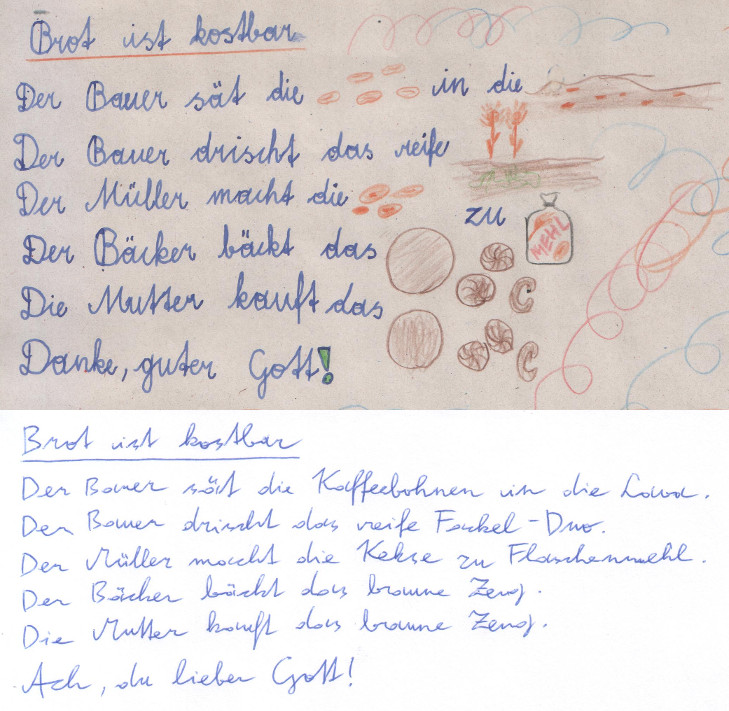 Brot ist kostbar
Der Bauer sät die in die
Der Bauer drischt das reife
Der Müller macht die zu
MEHL
Der Bäcker bäckt das
Die Mutter kauft das
Danke, guter Gott!
Brot ist kostbar
Der Bauer sät die Kaffeebohnen in die Lava.
Der Bauer drischt das reife Fackel-Duo.
Der Müller macht die Kekse zu Flaschenmehl.
Der Bäcker bäckt das braune Zeug.
Die Mutter kauft das braune Zeug.
Ach, du lieber Gott!